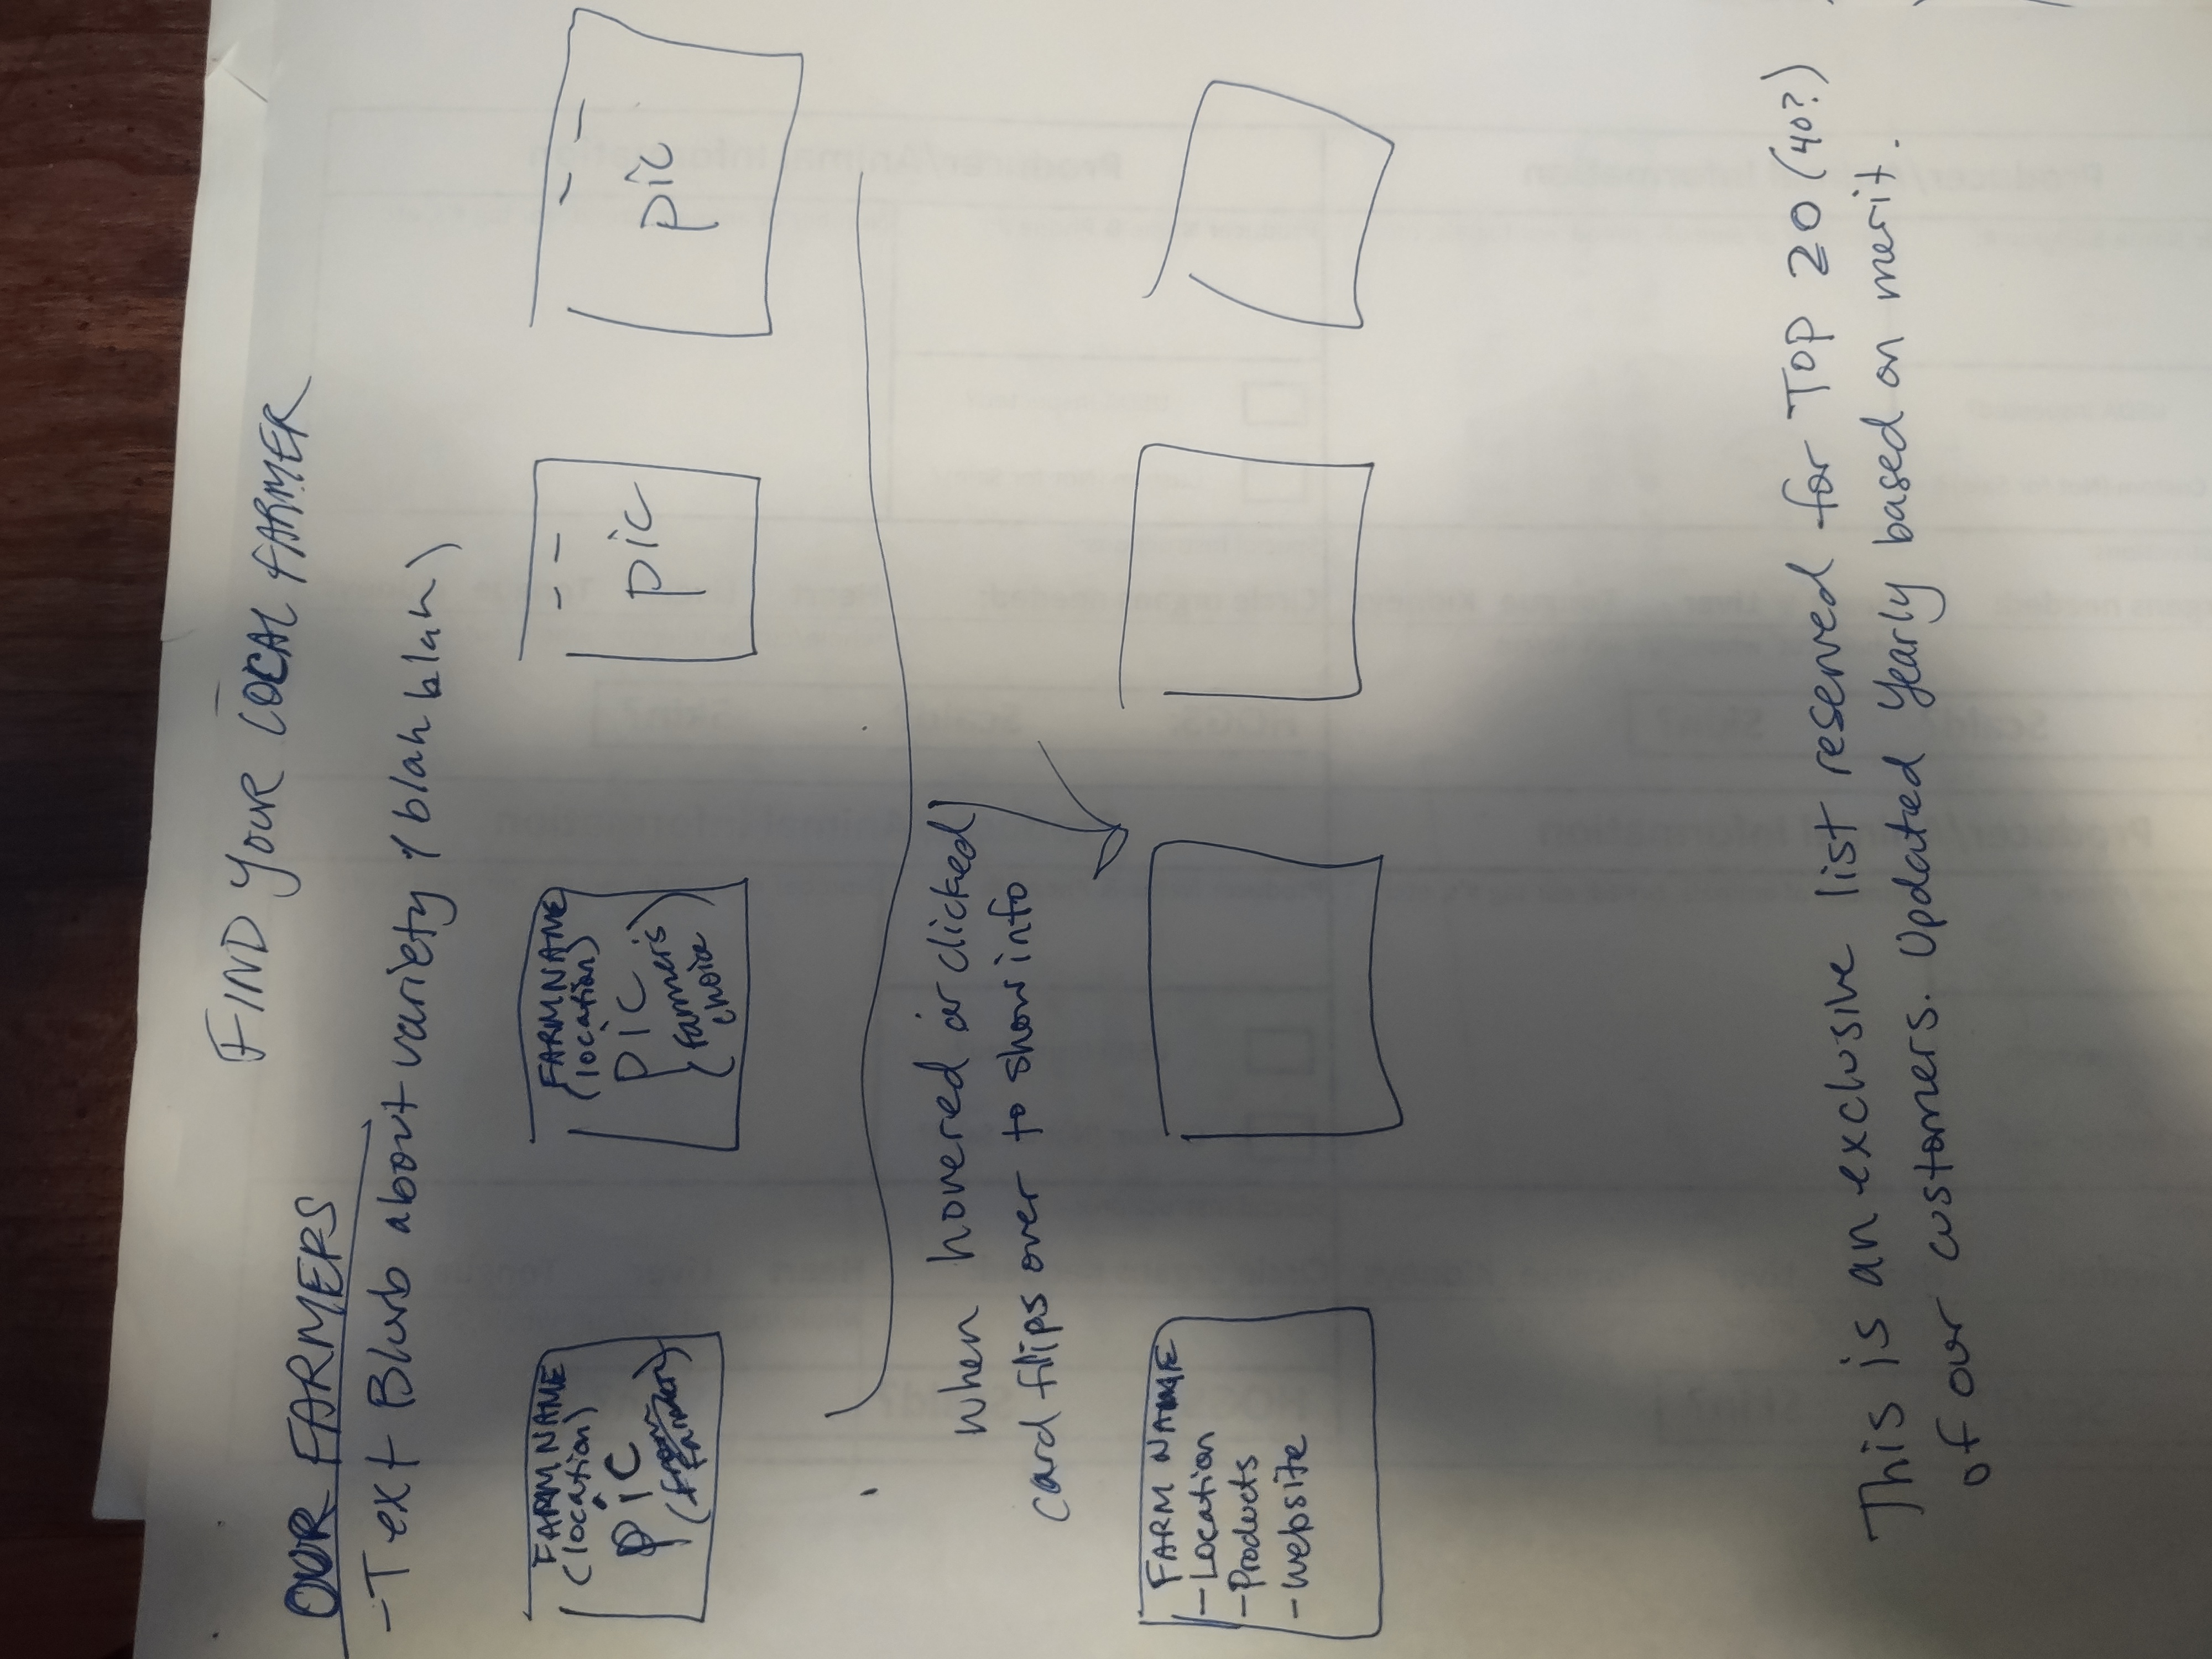 FIND YOUR LOCAL FARMER
OUR FARMERS
- Text Blurb about variety (blah blah)
FARM NAME
(location)
pic
(from
farmer)
FARM NAME
(location)
pic
(farmer's
choice)
pic
pic
when hovered or clicked
card flips over to show info
FARM NAME
- Location
- Products
- website
This is an exclusive list reserved for TOP 20 (40?)
of our customers. Updated Yearly based on merit.